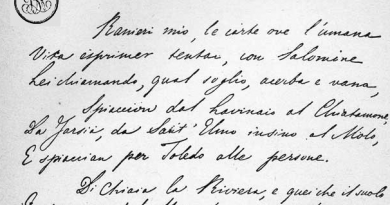 Ranieri mio, le carte ove l'umana
Vita esprimer tentai, con Salomone
Lei chiamando, qual soglio, acerba e vana,
Spiaccion dal Lavinaio al Chiatamone,
Da Tarsia, da Sant' Elmo insino al Molo,
E spiaccian per Toledo alle persone.
Di Chiaia la Riviera, e quei che il suolo